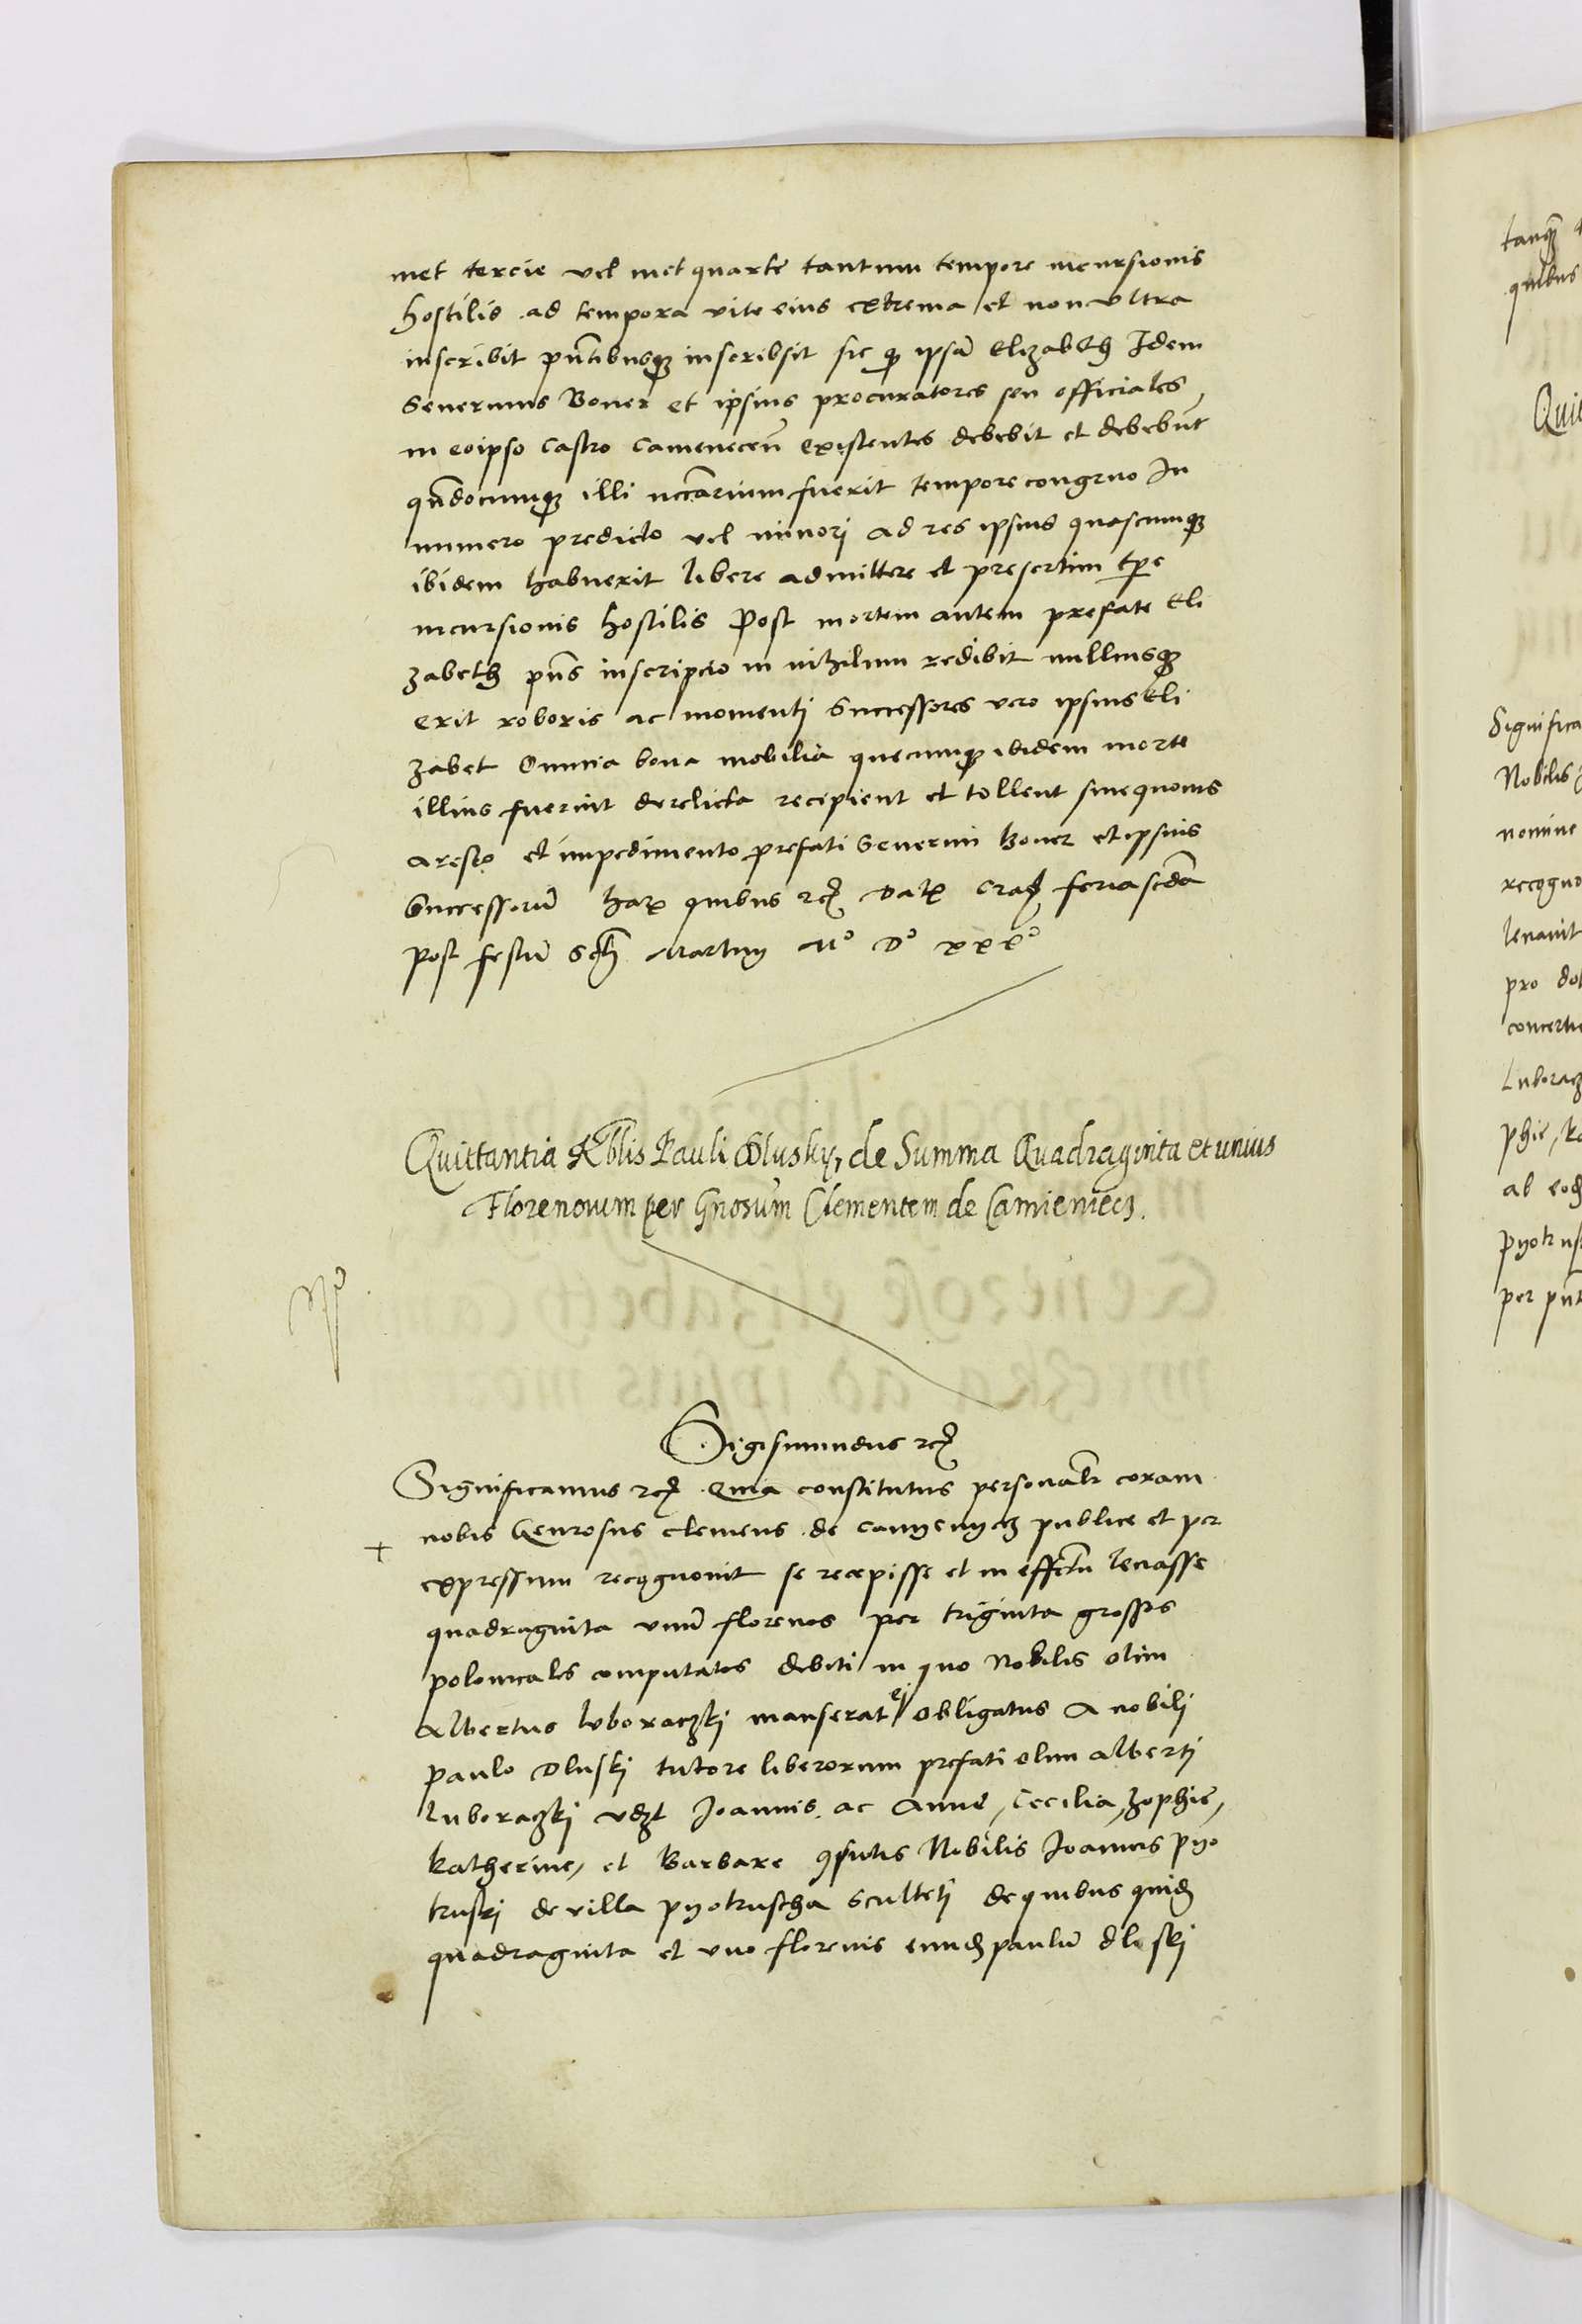 met tercie vel met quarte tantum tempore incursionis
hostilis ad tempora vite eius extrema et non vltra
inscribit pñtibusqꝫ inscribsit sic qꝫ ipsã Elizabeth Idem
Seuerinus Boner et ipsius procuratores seu officiales
in eoipso Castro Camenecen̄ existentes debebit et debebũt
qñdocumqꝫ illi nccãrium fuerit tempore congruo In
numero predicto vel minori ad res ipsius quascumqꝫ
ibidem habuerit libere admittere et presertim tp̄e
incursionis hostilis Post mortem autem prefate Eli
zabeth pñs inscripcio in nihilum redibit nulliusqꝫ
erit roboris ac momenti Successores vero ipsius Eli
zabet Omnia bona mobilia quecumqꝫ ibidem morte
illius fuerint derelicta recipient et tollent sine quouis
aresto et impedimento prefati Seuerini Boner et ipsius
Successorũ harꝫ quibus rcꝫ Datꝫ Cracꝫ feria scdã
post festũ Scti Martinj Mᵒ Dᵒ xxxᵒ
Quittantia Nblis Pauli Dlusky, de Summa Quadraginta et unius
Florenorum per Gnosum Clementem de Camieniecz.
Sigismundus rcꝫ
Significamus rcꝫ Quia constitutus personalr̃ coram
nobis Generosus Clemens de Camyenyecz publice et per
+
expressum recognouit se recepisse et in effctu leuasse
quadraginta vnũ florenos per triginta grossos
polonicales computatos debiti in quo Nobilis olim
Albertus luboraczki manserat ei obligatus A nobili
Paulo Dluski tutore liberorum prefati olim alberti
luboraczki vdꝫt Joannis ac Anne, Cecilia, Zophie,
Katherine, et Barbare Nobilis Joannis pyo
truski de villa pyotruscha Sculteti de quibus quidẽ
quadraginta et vno florenis eundẽ paulũ dluski
tanqꝫ
quibus
Significa
Nobilis
nomine
recogno
leuauit
pro
Luboracz
phie,
per pñt